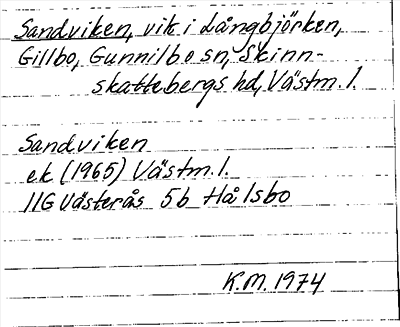 Sandviken, vik i Långbjörken,
Gillbo, Gunnilbo sn, Skinn-
skattebergs hd, Västm. l.
Sandviken
ek (1965) Västm. l.
11G Västerås 5b Hålsbo
K.M. 1974